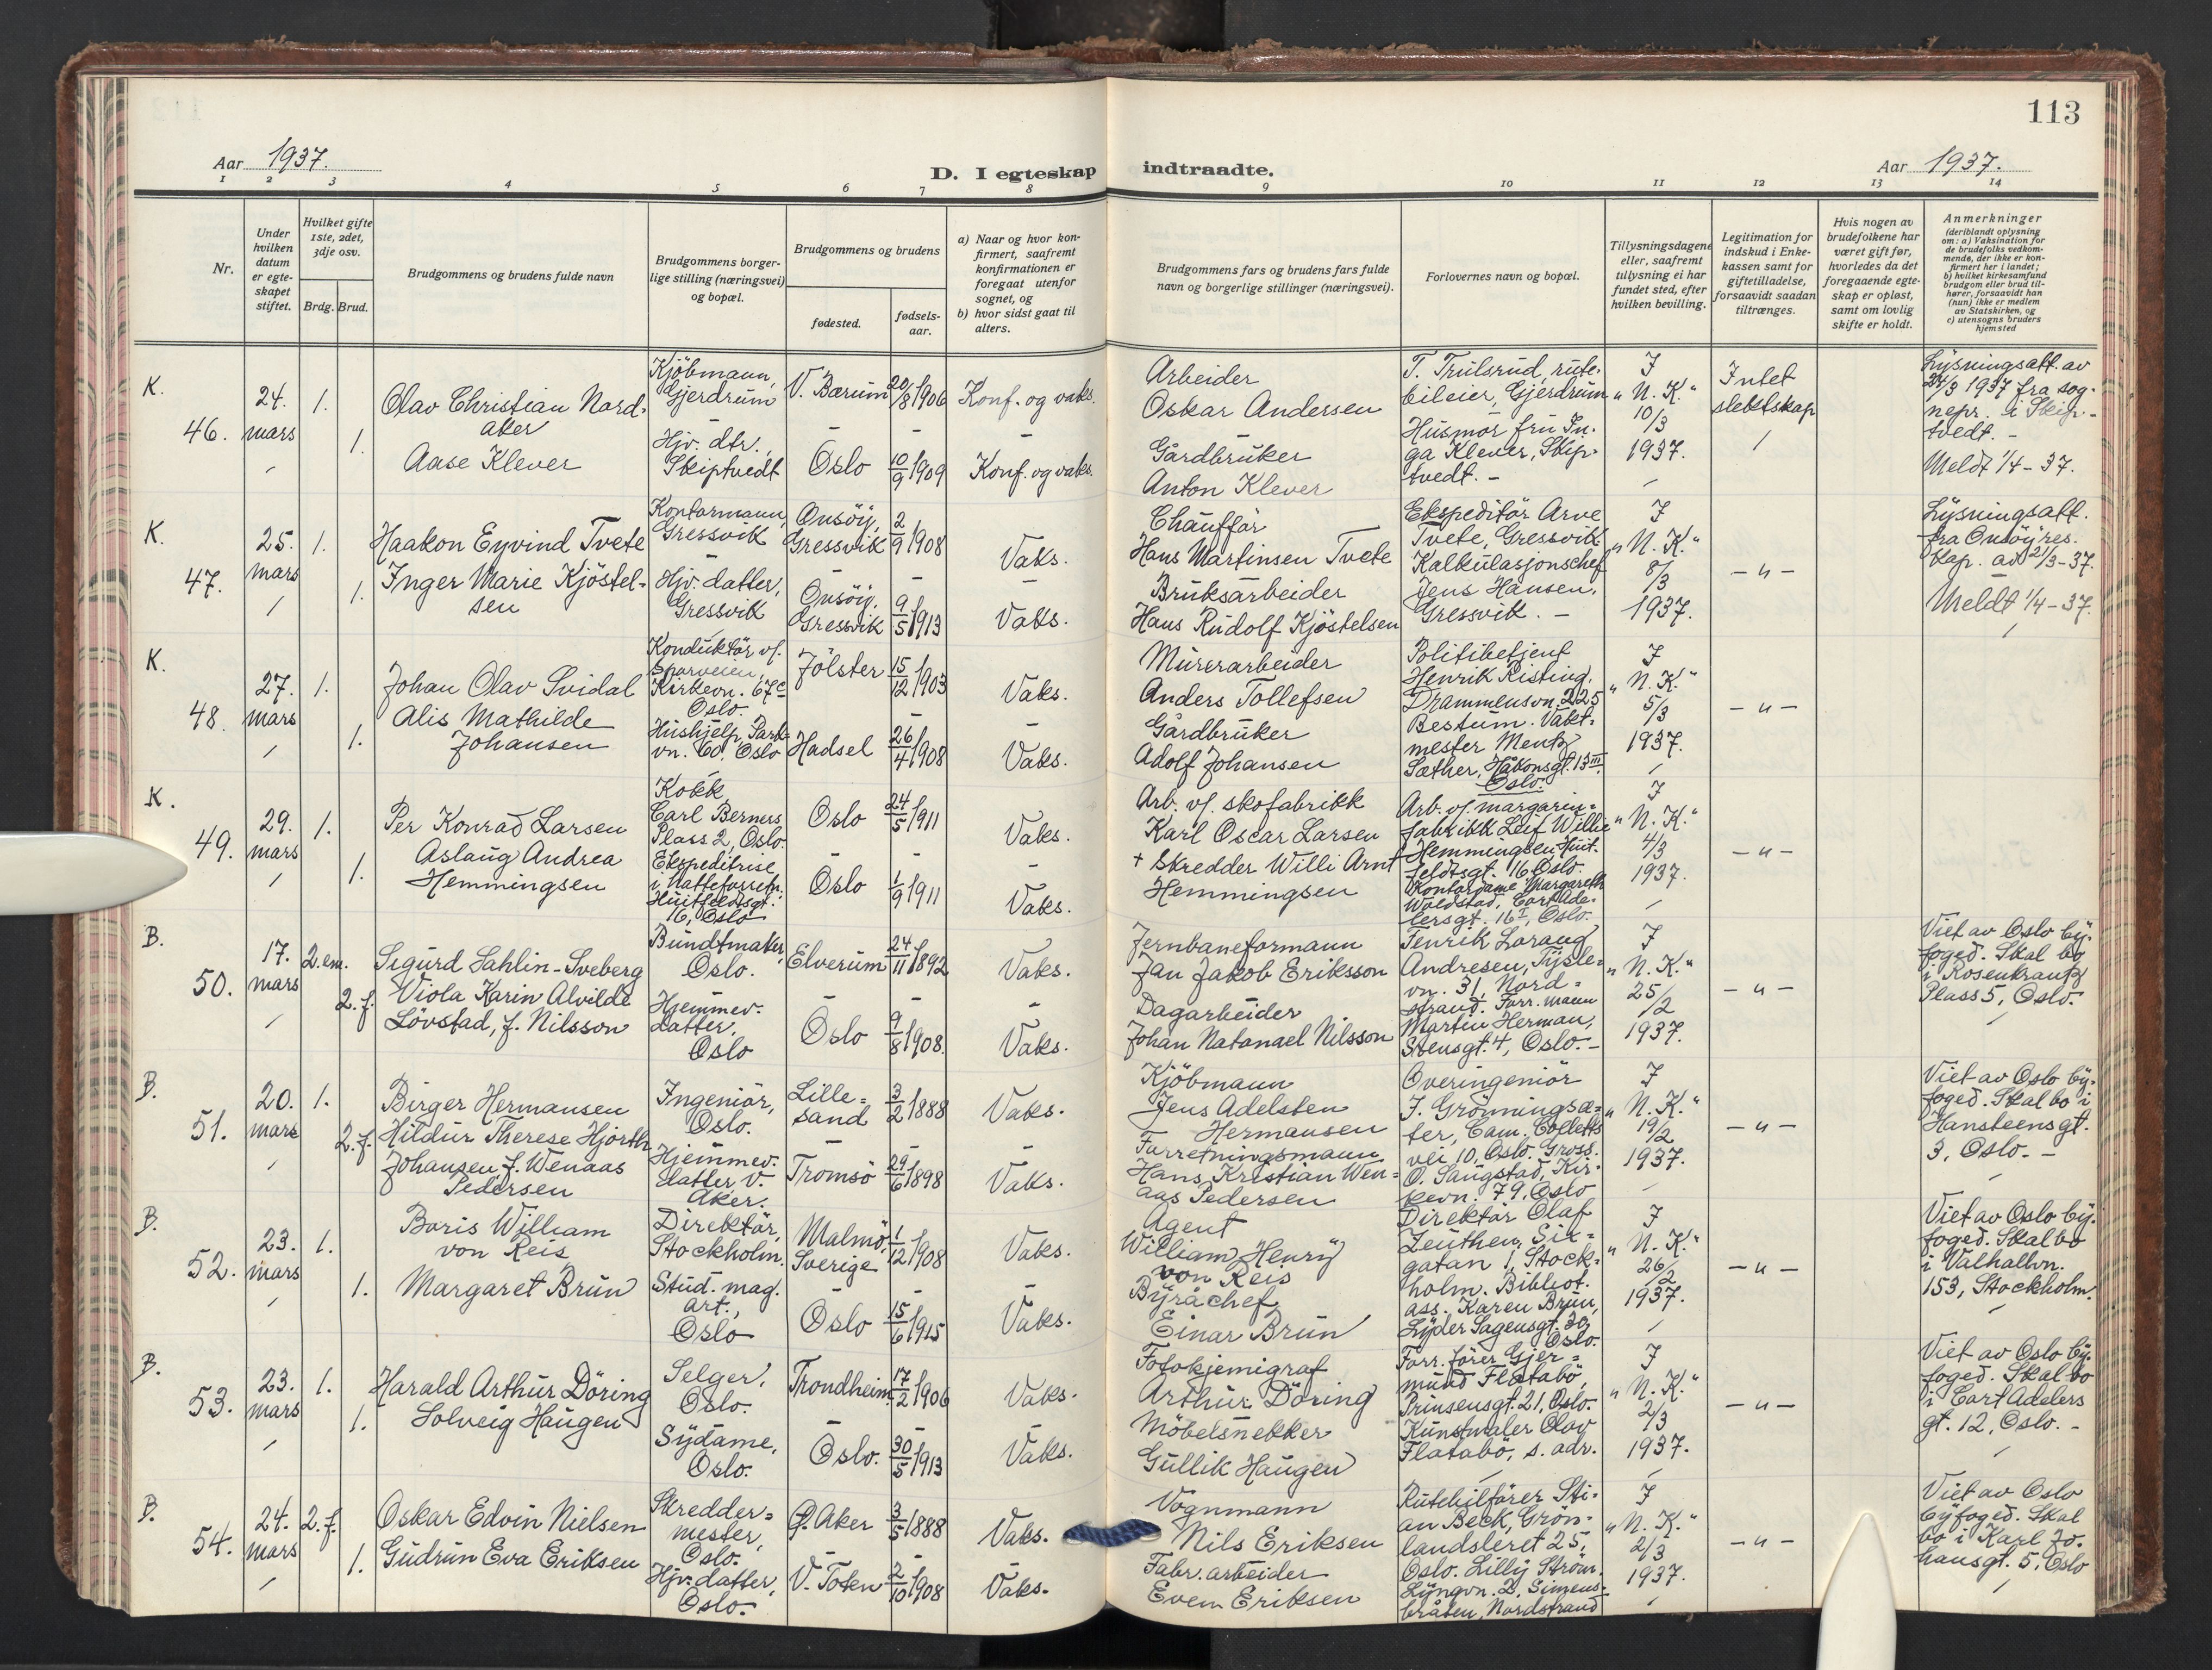 113
Aar 1937.
D. I egteskap indtraadte.
Aar 1937.
1 2 3 4 5 6 7 8 9 10 11 12 13 14
Nr.
Under hvilken datum er egteskapet stiftet.
Hvilket gifte 1ste, 2det, 3dje osv.
Brdg. Brud.
Brudgommens og brudens fulde navn
Brudgommens borgerlige stilling (næringsvei) og bopæl.
Brudgommens og brudens
fødested.
fødsels-aar.
a) Naar og hvor konfirmert, saafremt konfirmationen er foregaat utenfor sognet, og
b) hvor sidst gaat til alters.
Brudgommens fars og brudens fars fulde navn og borgerlige stillinger (næringsvei).
Forlovernes navn og bopæl.
Tillysningsdagene eller, saafremt tillysning ei har fundet sted, efter hvilken bevilling.
Legitimation for indskud i Enkekassen samt for giftetilladelse, forsaavidt saadan tiltrænges.
Hvis nogen av brudefolkene har været gift før, hvorledes da det foregaaende egteskap er opløst, samt om lovlig skifte er holdt.
Anmerkninger (deriblandt oplysning om: a) Vaksination for de brudefolks vedkommende, der ikke er konfirmert her i landet; b) hvilket kirkesamfund brudgom eller brud tilhører, forsaavidt han (hun) ikke er medlem av Statskirken, og c) utensogns bruders hjemsted
K.
46.
24. mars
1.
1.
Olav Christian Nordaker
Aase Klever
Kjöbmann, Gjerdrum
Hjv. dtr., Skiptvedt
V. Bærum 20/8 1906
Oslo 10/9 1909
Konf. og vaks.
Konf. og vaks.
Arbeider
Oskar Andersen
Gårdbruker
Anton Klever
T. Trulsrud, rute-
bileier, Gjerdrum
Husmor fru In-
ga Klever, Skip-
tvedt. -
I
"N. K."
10/3
1937.
Intet
slektskap
Lysningsatt. av
24/3 1937 fra sog-
nepr. i Skip-
tvedt. -
Meldt 1/4 - 37.
K.
47.
25. mars
1.
1.
Haakon Eyvind Tvete
Inger Marie Kjöstel-
sen
Kontormann, Gressvik
Hjv. datter, Gressvik
Onsöy, Gressvik 2/9 1908
Onsöy, Gressvik 9/5 1913
Vaks.
Vaks.
Chauffør
Hans Martinsen Tvete
Bruksarbeider
Hans Rudolf Kjöstelsen
Ekspeditör Arve
Tvete, Gressvik
Kalkulasjonschef
Jens Hansen,
Gressvik. -
I
"N. K."
8/3
1937.
- " -
Lysningsatt.
fra Onsöy res.
kap. av 21/3-37.
Meldt 1/4-37.
K.
48.
27. mars
1.
1.
Johan Olav Svidal
Alis Mathilde
Johansen
Konduktör v/
Sporveien,
Kirkevn. 67c
Oslo.
Hushjelp, Park-
vn. 60. Oslo
Jölster 15/12 1903
Hadsel 26/4 1908
Vaks.
Vaks.
Murerarbeider
Anders Tollefsen
Gårdbruker
Adolf Johansen
Politibetjent
Henrik Risting,
Drammensvn. 225
Bestum. Vakt-
mester Mentz
Sæther, Håkonsgt. 13 III,
Oslo.
I
"N. K."
5/3
1937.
- " -
K.
49.
29. mars
1.
1.
Per Konrad Larsen
Aslaug Andrea
Hemmingsen
Kokk,
Carl Berners
Plass 2, Oslo.
Ekspeditrise
i Hatteforretn.
Huitfeldtsgt.
16, Oslo
Oslo 24/5 1911
Oslo 1/9 1911
Vaks.
Vaks.
Arb. v/ skofabrikk
Karl Oscar Larsen
+ Skredder Willi Arnt
Hemmingsen
Arb. v/ margarin-
fabrikk Leif Willie
Hemmingsen, Huit-
feldtsgt. 16 Oslo.
Kontordame Margareth
Woldstad, Cort Ade-
lersgt. 16 I, Oslo.
I
"N. K."
4/3
1937.
- " -
B.
50.
17. mars
2. em.
2. f.
Sigurd Sahlin-Sveberg
Viola Karin Alvilde
Lövstad, f. Nilsson
Bundtmaker, Oslo.
Hjemmev.
datter,
Oslo
Elverum 24/11 1892
Oslo 9/8 1908.
Vaks.
Vaks.
Jernbaneformann
Jan Jakob Eriksson
Dagarbeider
Johan Natanael Nilsson
Andresen,
vn. 31, Nord-
strand. Forr. mann
Martin Herman,
Stensgt. 4, Oslo. -
I
"N. K."
25/2
1937.
- " -
Viet av Oslo by-
foged. Skal bo
i Rosenkrantz
Plass 5, Oslo.
B.
51.
20. mars
1.
2. f.
Birger Hermansen
Hildur Therese Hjorth
Johansen, f. Wenaas
Pedersen
Ingeniör, Oslo.
Hjemmev.
datter V.
Aker.
Lille-
sand 3/2 1888
Tromsö 29/6 1898
Vaks.
Vaks.
Kjöbmann
Jens Adelsten
Hermansen
Forretningsmann
Hans Kristian Wen-
aas Pedersen
Overingeniör
J. Grönningsæ-
ter, Cam. Colletts
vei 10, Oslo. Gross.
O. Saugstad, Kir-
kevn. 79. Oslo
I
"N. K."
19/2
1937.
- " -
Viet av Oslo by-
foged. Skal bo i
Hansteensgt.
3, Oslo. -
B.
52.
23. mars
1.
1.
Boris William
von Reis
Margaret Brun
Direktör,
Stockholm.
Stud. mag.
art.,
Oslo
Malmö, Sverige 1/12 1908
Oslo 15/6 1915
Vaks.
Vaks.
Agent
William Henry
von Reis
Byråchef
Einar Brun
Direktör Olaf
Zeuthen, Sir-
gatan 1, Stock-
holm. Bibliot.
ass. Karen Brun,
Lyder Sagensgt. 30,
Oslo.
I
"N. K."
26/2
1937.
- " -
Viet av Oslo by-
foged. Skal bo
i Valhallvn.
153, Stockholm.
B.
53.
23. mars
1.
1.
Harald Arthur Döring
Solveig Haugen
Selger,
Oslo.
Sydame,
Oslo.
Trondheim 17/2 1906
Oslo. 30/5 1913
Vaks.
Vaks.
Fotokjemigraf
Arthur Döring
Möbelsnekker
Gullik Haugen
Forr. förer Gjer-
mund Flatabö,
Prinsensgt. 21, Oslo.
Kunstmaler Olav
Flatabö, s. adr.
I
"N. K."
2/3
1937.
- " -
Viet av Oslo by-
foged. Skal bo
i Cort Adelers
gt. 12, Oslo. -
B.
54.
24. mars
2. f.
1.
Oskar Edvin Nielsen
Gudrun Eva Eriksen
Skredder-
mester,
Oslo.
Hjv. datter,
Oslo.
Ø. Aker 3/5 1888
V. Toten 2/10 1908
Vaks.
Vaks.
Vognmann
Nils Eriksen
Fabr. arbeider
Even Eriksen
Rutebilförer Sti-
an Beck, Grön-
landsleret 25,
Oslo. Lilly Ström,
Lyngvn. 2, Simens-
bråten, Nordstrand
I
"N. K."
2/3
1937.
- " -
Viet av Oslo
byfoged. Skal
bo i Karl Jo-
hansgt. 5, Oslo